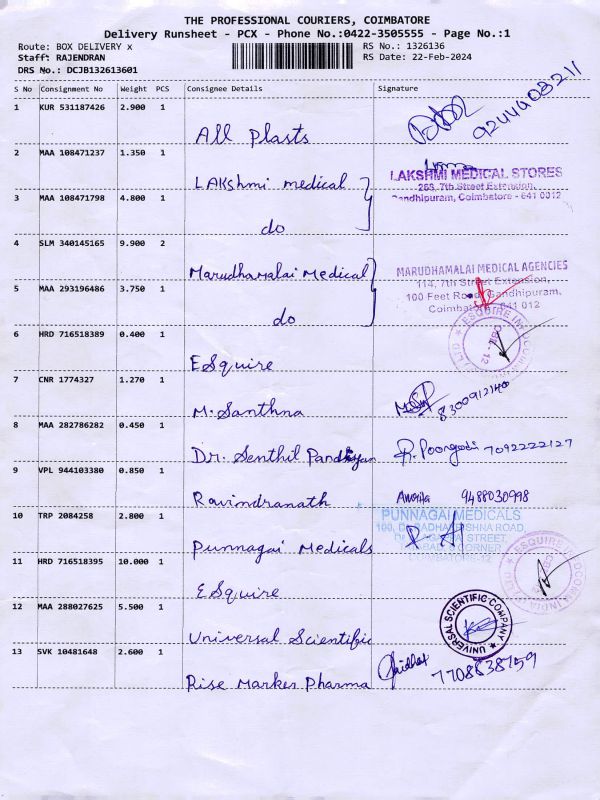 THE PROFESSIONAL COURIERS, COIMBATORE
Delivery Runsheet - PCX - Phone No.:0422-3505555 - Page No.:1
Route: BOX DELIVERY x
RS No.: 1326136
Staff: RAJENDRAN
RS Date: 22-Feb-2024
DRS No.: DCJB132613601
S No Consignment No Weight PCS Consignee Details Signature
1 KUR 531187426 2.900 1
All Plasts
2 MAA 108471237 1.350 1
LAKshmi medical
LAKSHMI MEDICAL STORES
268, 7th Street Extension,
Gandhipuram, Coimbatore - 641 0012
3 MAA 108471798 4.800 1
do
4 SLM 340145165 9.900 2
Marudhamalai Medical
MARUDHAMALAI MEDICAL AGENCIES
114, 7th Street Extension,
100 Feet Road, Gandhipuram,
Coimbatore 641 012
5 MAA 293196486 3.750 1
do
6 HRD 716518389 0.400 1
ESquire
7 CNR 1774327 1.270 1
M. Santhna
8300912140
8 MAA 282786282 0.450 1
Dr. Senthil Pandiyan
R. Poongodi 7092222127
9 VPL 944103380 0.850 1
Ravindranath
9488030998
10 TRP 2084258 2.800 1
Punnagai Medicals
PUNNAGAI MEDICALS
11 HRD 716518395 10.000 1
ESquire
12 MAA 288027625 5.500 1
Universal Scientific
UNIVERSAL SCIENTIFIC COMPANY
13 SVK 10481648 2.600 1
Rise Marker Pharma
7708838759